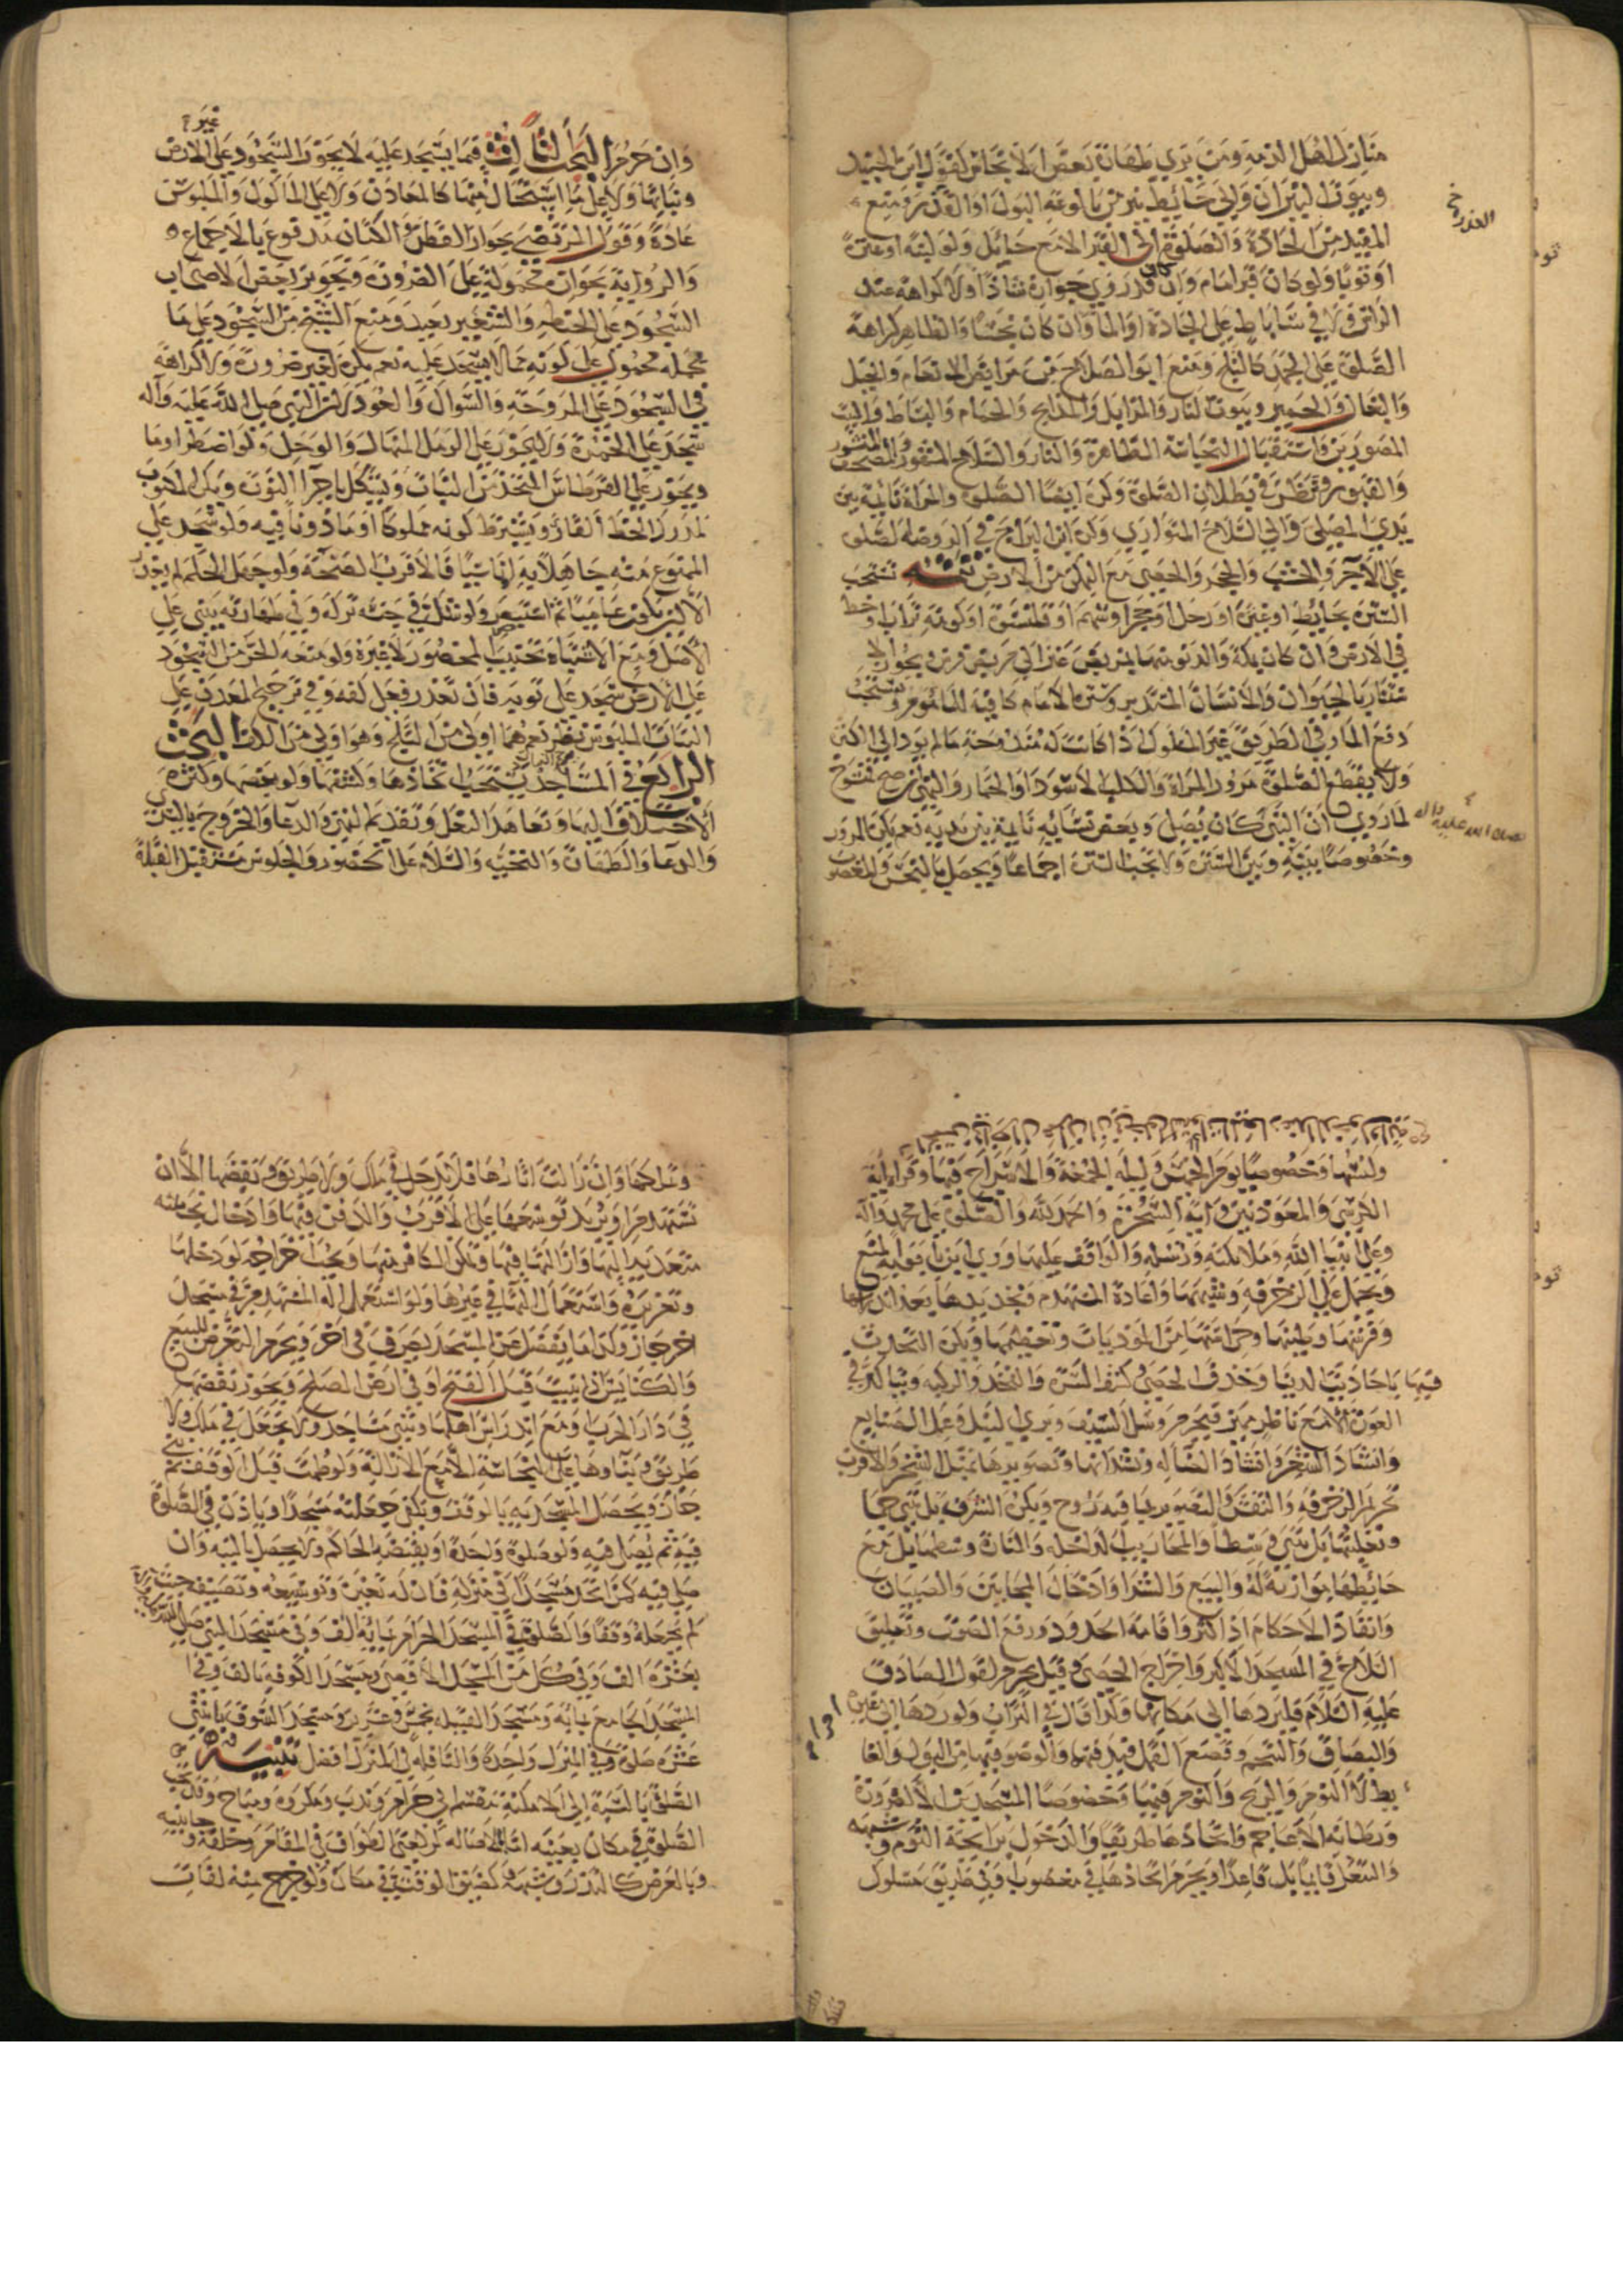 منازل اهل الذمة ومن يرى طهارة بعض الانجاس كقول ابن الجنيد
وبيوت النيران والى حائط ينز من بالوعة البول او القذر ومنع
العذرة خ
المفيد من الجادة والصلوة الى القبر الا مع حايل ولو لبنة او عنزة
او ثوبا ولو كان قبر امام وان كان قدر روي جوازه شاذا ولا كراهة عند
في ساباط على الجادة او الماء وان كان نجسا والظاهر كراهة
الصلوة على الجمد كالثلج ومنع ابو الصلاح من مرابض الانعام والخيل
والبغال والحمير وبيوت النار والمزابل والمذابح والحمام والبساط والبيت
المصورين واستقبال النجاسة الظاهرة والنار والسلاح المشهور والمصحف المنشور
والقبور ونظر في بطلان الصلوة وكره ايضا الصلوة والمراة نائمة بين
يدي المصلى والى السلاح المتوارى وكره ابن البراج في الروضة الصلوة
على الآجر والخشب والحجر والحصى مع التمكن من الارض تتمة تستحب
السترة بحايط او عنزة او رحل او حجر او سهم او قلنسوة او كومة تراب او خط
في الارض وان كان بمكة والدنو منها بمربض عنز الى مربض فرس ويجوز الا
ستتار بالحيوان والانسان المستدبر وسترة الامام كافية للمأموم ويستحب
دفع المار في الطريق غير المسلوك اذا كانت له مندوحة ما لم يود الى اكثر
ولا يقطع الصلوة مرور المراة والكلب الاسود او الحمار والنهي ان صح منسوخ
لما روي ان النبي كان يصلى وبعض نسائه نائمة بين يديه نعم يكره المرور
صلى الله عليه واله
وخصوصا بينه وبين السترة ولا تجب السترة اجماعا ويحصل بالنجس والمغصوب
وان حرم البحث الثالث فيما يسجد عليه لا يجوز السجود على غير الارض
ونباتها ولا على ما استحال منها كالمعادن ولا على المأكول والملبوس
عادة وقول المرتضى بجواز القطن والكتان مدفوع بالاجماع
والرواية بجوازه محمولة على الضرورة وتجويز بعض الاصحاب
السجود على الحنطة والشعير بعيد ومنع الشيخ من السجود على ما
يحمله محمول على كونه مما لا يسجد عليه نعم يكره لغير ضرورة ولا كراهة
في السجود على المروحة والسواك والعود لان النبي صلى الله عليه وآله
سجد على الخمرة ولا يجوز على الرمل المنهال والوحل ولو اضطر اوما
ويجوز على القرطاس المتخذ من النبات ويشكل باجزاء النورة ويكره المكتوب
لمن ادرك الخط القاري ويشترط كونه مملوكا او ماذونا فيه ولو سجد على
الممنوع منه جاهلا به او ناسيا فالاقرب الصحة ولو جهل الحكم لم يعذر
الا ان يكون عاميا ثم استبصر ولو شك في جنسه تركه وفي طهارته بنى على
الاصل ومع الاشتباه تجتنب المحصور لا غيره ولو منعه الحر من السجود
على الارض سجد على ثوبه فان تعذر فعلى كفه وفي ترجيح المعدن على
النبات الملبوس نظر نعم هما اولى من الثلج وهو اولى من الكف البحث
الرابع في المساجد يستحب اتخاذها وكشفها ولو بعضها وكثرة
الاختلاف اليها وتعاهد النعل وتقديم اليمين والدعاء والخروج باليسرى
والدعاء والطهارة والتحية والسلام على الحضور والجلوس مستقبل القبلة
ولبسها وخصوصا يوم الخميس وليلة الجمعة والاسراج فيها وقراءة آية
الكرسي والمعوذتين وآية السخرة والحمد لله والصلوة على محمد وآله
وعلى انبياء الله وملائكته ورسله والوقف عليها وروى ابن بابويه المنع
ويحمل على الزخرفة وشبهها واعادة المستهدم وتجديدها بعد اندراسها
فيها باحاديث الدنيا وخذف الحصى وكشف السرة والفخذ والركبة ويتاكد في
العورة الا مع ناظر مميز فيحرم وسل السيف وبرى النبل وعمل الصنايع
وانشاد الشعر وانشاد الضالة ونشدانها وتصويرها بمثل الشجر والاقرب
تحريم الزخرفة والنقش والتصوير بما فيه روح ويكره الشرف بل تبنى جما
وتعليتها بل تبنى وسطا والمحاريب الداخلة والمنارة وسطها بل مع
حايطها موازنة له والبيع والشراء وادخال المجانين والصبيان
وانفاذ الاحكام اذا كثر واقامة الحدود ورفع الصوت وتعليق
السلاح في المسجد الاكبر واخراج الحصى وقيل يحرم لقول الصادق
عليه السلام فليردها الى مكانها وكذا قال في التراب ولو ردها الى غيره اجزأ
والبصاق والتنخم وقصع القمل فيدفنها والوضوء فيها من البول والغا
يط لا النوم والريح والنوم فيها وخصوصا المسجدين الا لضرورة
ورطانة الاعاجم واتخاذها طريقا والدخول برائحة الثوم وشبهه
والتنعل قائما بل قاعدا ويحرم اتخاذها في مغصوب او في طريق مسلول
وتملكها وان زالت اثارها فلا تدخل في ملك ولا طريق ونقضها الا ان
تستهدم او يريد توسعتها على الاقرب والدفن فيها وادخال نجاسة
متعدية اليها وازالتها فيها وتمكن الكافر منها ويجب اخراجه لو دخلها
وتعزيره واستعمال آلتها في غيرها ولو استعمل آلة المستهدم في مسجد
اخر جاز وكذا ما يفضل عن المسجد يصرف في اخر ويحرم التعرض للبيع
والكنايس ان بنيت قبل الفتح او في ارض الصلح ويجوز نقضها
في دار الحرب ومع اندراس اهلها وتبنى مساجد ولا تجعل في ملك ولا
طريق وبناؤها على النجاسة الا مع الازالة ولو طمت قبل الوقف ثم بنى
جاز ويحصل المسجدية بالوقف وتكفى جعلته مسجدا وياذن في الصلوة
فيه ثم يصلى فيه ولو صلوة واحدة او يقبضه الحاكم ولا يحصل بالنية وان
صلى فيه كمن اتخذ مسجدا في منزله فان له تغييره وتوسيعه وتضييقه حيث
لم يجعله وقفا والصلوة في المسجد الحرام بماية الف وفي مسجد النبي صلى الله
بعشرة الف وفي كل من المسجد الاقصى ومسجد الكوفة بالف وفي
المسجد الجامع بمائة ومسجد القبيلة بخمس وعشرين ومسجد السوق باثنتي
عشرة صلوة وفي المنزل واحدة والنافلة في المنزل افضل تنبيه
الصلوة بالنسبة الى الامكنة تنقسم الى حرام وندب ومكروه ومباح وقد تجب
الصلوة في مكان بعينه اما بالاصالة كركعتي الطواف في المقام او خلفه وجانبيه
وبالعرض كالنذر وشبهه كضيق الوقت في مكان ولو خرج منه لفات